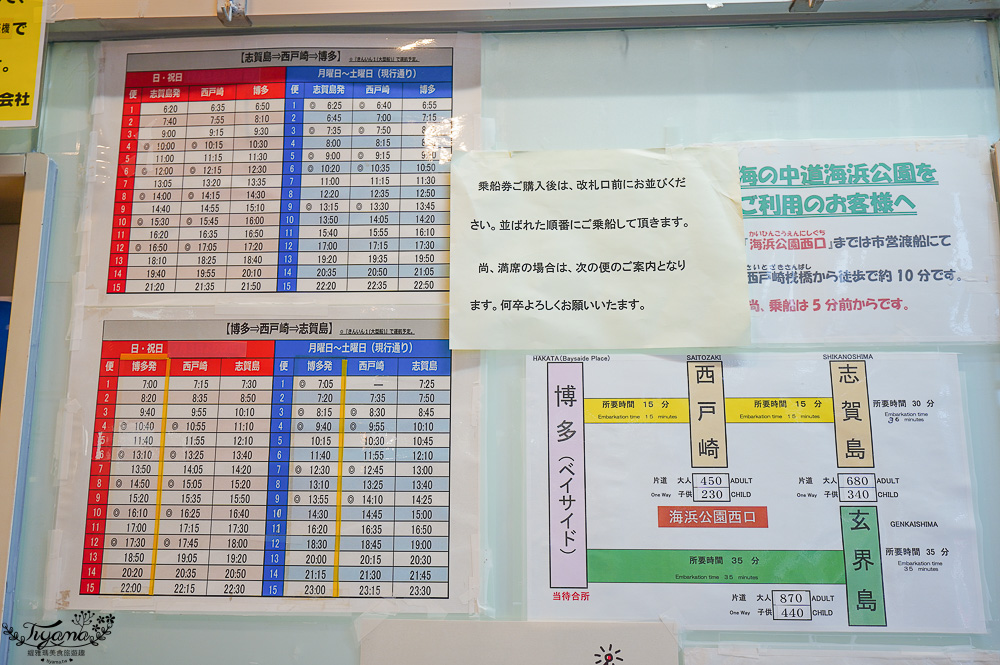 機で
す。
会社
【志賀島⇒西戸崎⇒博多】
日・祝日 月曜日～土曜日（現行通り）
便 志賀島発 西戸崎 博多 便 志賀島発 西戸崎 博多
1 6:20 6:35 6:50 1 ◎ 6:25 ◎ 6:40 6:55
2 7:40 7:55 8:10 2 6:45 7:00 7:15
3 9:00 9:15 9:30 3 ◎ 7:35 ◎ 7:50
4 ◎ 10:00 ◎ 10:15 10:30 4 8:00 8:15
5 11:00 11:15 11:30 5 ◎ 9:00 ◎ 9:15
6 ◎ 12:00 ◎ 12:15 12:30 6 ◎ 10:20 ◎ 10:35
7 13:05 13:20 13:35 7 11:00 11:15 11:30
8 ◎ 14:00 ◎ 14:15 14:30 8 12:20 12:35 12:50
9 14:40 14:55 15:10 9 ◎ 13:15 ◎ 13:30 13:45
10 ◎ 15:30 ◎ 15:45 16:00 10 13:50 14:05 14:20
11 16:20 16:35 16:50 11 15:40 15:55 16:10
12 ◎ 16:50 ◎ 17:05 17:20 12 17:00 17:15 17:30
13 18:10 18:25 18:40 13 19:20 19:35 19:50
14 19:40 19:55 20:10 14 20:35 20:50 21:05
15 21:20 21:35 21:50 15 22:20 22:35 22:50
【博多⇒西戸崎⇒志賀島】
日・祝日 月曜日～土曜日（現行通り）
便 博多発 西戸崎 志賀島 便 博多発 西戸崎 志賀島
1 7:00 7:15 7:30 1 ◎ 7:05 ― 7:25
2 8:20 8:35 8:50 2 7:20 7:35 7:50
3 9:40 9:55 10:10 3 ◎ 8:15 ◎ 8:30 8:45
4 ◎ 10:40 ◎ 10:55 11:10 4 ◎ 9:40 ◎ 9:55 10:10
5 11:40 11:55 12:10 5 10:15 10:30 10:45
6 ◎ 13:10 ◎ 13:25 13:40 6 11:40 11:55 12:10
7 13:50 14:05 14:20 7 ◎ 12:30 ◎ 12:45 13:00
8 ◎ 14:50 ◎ 15:05 15:20 8 13:10 13:25 13:40
9 15:20 15:35 15:50 9 ◎ 13:55 ◎ 14:10 14:25
10 ◎ 16:10 ◎ 16:25 16:40 10 14:30 14:45 15:00
11 17:00 17:15 17:30 11 16:20 16:35 16:50
12 ◎ 17:30 ◎ 17:45 18:00 12 18:30 18:45 19:00
13 18:50 19:05 19:20 13 20:00 20:15 20:30
14 20:20 20:35 20:50 14 21:15 21:30 21:45
15 22:00 22:15 22:30 15 23:00 23:15 23:30
乗船券ご購入後は、改札口前にお並びくだ
さい。並ばれた順番にご乗船して頂きます。
尚、満席の場合は、次の便のご案内となり
ます。何卒よろしくお願いいたます。
海の中道海浜公園を
ご利用のお客様へ
かいひんこうえんにしぐち
「海浜公園西口」までは市営渡船にて
さいとざきさんばし
西戸崎桟橋から徒歩で約10分です。
尚、乗船は5分前からです。
HAKATA(Bayside Place) SAITOZAKI SHIKANOSHIMA
博多（ベイサイド）
西戸崎
志賀島
所要時間 15 分
Embarkation time 15 minutes
所要時間 15 分
Embarkation time 15 minutes
所要時間 30 分
Embarkation time
36 minutes
片道 大人 450 ADULT
One Way 子供 230 CHILD
片道 大人 680 ADULT
One Way 子供 340 CHILD
海浜公園西口
玄界島
GENKAISHIMA
所要時間 35 分
Embarkation time 35 minutes
所要時間 35 分
Embarkation time
35 minutes
当待合所
片道 大人 870 ADULT
One Way 子供 440 CHILD
Tiyama
緹雅瑪美食旅遊趣